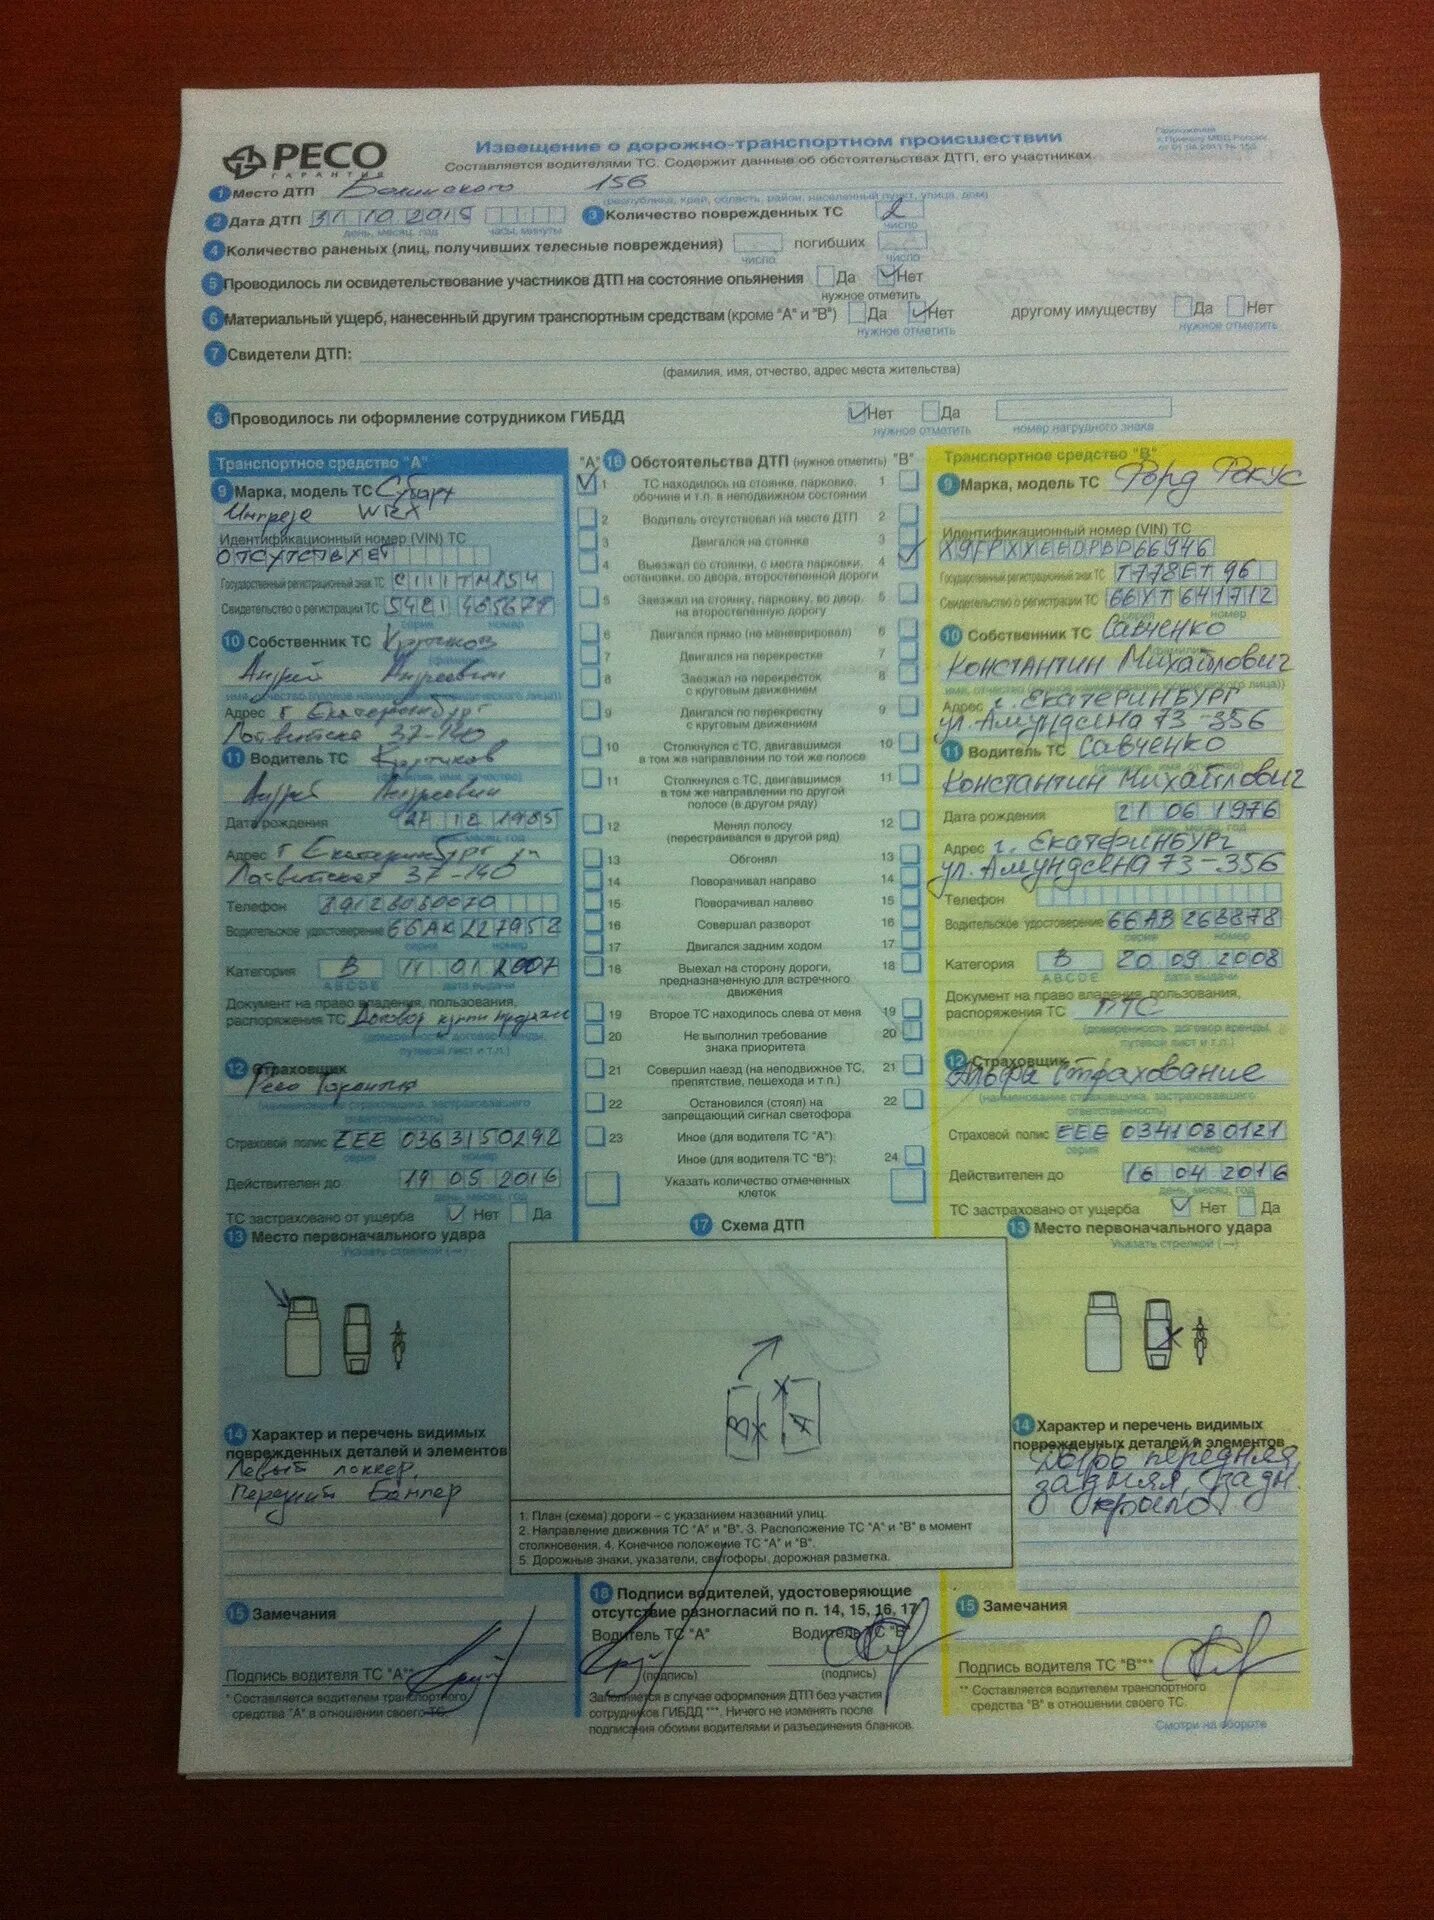 РЕСО
ГАРАНТИЯ
Извещение о дорожно-транспортном происшествии
Составляется водителями ТС. Содержит данные об обстоятельствах ДТП, его участниках
1 Место ДТП 156
(республика, край, область, район, населенный пункт, улица, дом)
2 Дата ДТП 31 10 2015
день, месяц, год часы, минуты
3 Количество поврежденных ТС 2
число
4 Количество раненых (лиц, получивших телесные повреждения) погибших
число число
5 Проводилось ли освидетельствование участников ДТП на состояние опьянения Да Нет
нужное отметить
6 Материальный ущерб, нанесенный другим транспортным средствам (кроме "А" и "В") Да Нет другому имуществу Да Нет
нужное отметить нужное отметить
7 Свидетели ДТП:
(фамилия, имя, отчество, адрес места жительства)
8 Проводилось ли оформление сотрудником ГИБДД Нет Да
нужное отметить номер нагрудного знака
Транспортное средство "А"
9 Марка, модель ТС Субару
Импреза WRX
Идентификационный номер (VIN) ТС
ОТСУТСТВУЕТ
Государственный регистрационный знак ТС С111ТМ154
Свидетельство о регистрации ТС
серия номер
10 Собственник ТС Крутиков
Андрей Андреевич
Адрес г Екатеринбург
37-140
11 Водитель ТС Крутиков
(фамилия, имя, отчество)
Андрей Андреевич
Дата рождения 12 1985
день, месяц, год
Адрес г Екатеринбург ул
37-140
Телефон
Водительское удостоверение 66АК 227958
серия номер
Категория В 14 01 2007
ABCDE дата выдачи
Документ на право владения, пользования,
распоряжения ТС Договор купли продажи
(доверенность, договор аренды,
путевой лист и т.п.)
12 Страховщик
Ресо Гарантия
(наименование страховщика, застраховавшего
ответственность)
Страховой полис ЕЕЕ 0363150292
серия номер
Действителен до 19 05 2016
день, месяц, год
ТС застраховано от ущерба Нет Да
13 Место первоначального удара
Указать стрелкой (→)
14 Характер и перечень видимых
поврежденных деталей и элементов
Левый локкер,
Передний Бампер
15 Замечания
Подпись водителя ТС "А"*
* Составляется водителем транспортного
средства "А" в отношении своего ТС.
"А" 16 Обстоятельства ДТП (нужное отметить) "В"
1 ТС находилось на стоянке, парковке, 1
обочине и т.п. в неподвижном состоянии
2 Водитель отсутствовал на месте ДТП 2
3 Двигался на стоянке 3
4 Выезжал со стоянки, с места парковки, 4
остановки, со двора, второстепенной дороги
5 Заезжал на стоянку, парковку, во двор, 5
на второстепенную дорогу
6 Двигался прямо (не маневрировал) 6
7 Двигался на перекрестке 7
8 Заезжал на перекресток 8
с круговым движением
9 Двигался по перекрестку 9
с круговым движением
10 Столкнулся с ТС, двигавшимся 10
в том же направлении по той же полосе
11 Столкнулся с ТС, двигавшимся 11
в том же направлении по другой
полосе (в другом ряду)
12 Менял полосу 12
(перестраивался в другой ряд)
13 Обгонял 13
14 Поворачивал направо 14
15 Поворачивал налево 15
16 Совершал разворот 16
17 Двигался задним ходом 17
18 Выехал на сторону дороги, 18
предназначенную для встречного
движения
19 Второе ТС находилось слева от меня 19
20 Не выполнил требование 20
знака приоритета
21 Совершил наезд (на неподвижное ТС, 21
препятствие, пешехода и т.п.)
22 Остановился (стоял) на 22
запрещающий сигнал светофора
23 Иное (для водителя ТС "А"):
Иное (для водителя ТС "В"): 24
Указать количество отмеченных
клеток
17 Схема ДТП
В А
1. План (схема) дороги – с указанием названий улиц.
2. Направление движения ТС "А" и "В". 3. Расположение ТС "А" и "В" в момент
столкновения. 4. Конечное положение ТС "А" и "В".
5. Дорожные знаки, указатели, светофоры, дорожная разметка.
18 Подписи водителей, удостоверяющие
отсутствие разногласий по п. 14, 15, 16, 17
Водитель ТС "А" Водитель ТС "В"
(подпись) (подпись)
Заполняется в случае оформления ДТП без участия
сотрудников ГИБДД ***. Ничего не изменять после
подписания обоими водителями и разъединения бланков.
Транспортное средство "В"
9 Марка, модель ТС Форд Фокус
Идентификационный номер (VIN) ТС
X9FPXXEEDPBD66946
Государственный регистрационный знак ТС Т778ЕТ 96
Свидетельство о регистрации ТС 66УТ 641712
серия номер
10 Собственник ТС Савченко
(фамилия,
Константин Михайлович
Адрес г. Екатеринбург
ул. Амундсена 73-356
11 Водитель ТС Савченко
(фамилия, имя, отчество)
Константин Михайлович
Дата рождения 21 06 1976
день, месяц, год
Адрес г. Екатеринбург
ул. Амундсена 73-356
Телефон
Водительское удостоверение 66АВ 268878
серия номер
Категория В 20 09 2008
ABCDE дата выдачи
Документ на право владения, пользования,
распоряжения ТС ПТС
(доверенность, договор аренды,
путевой лист и т.п.)
12 Страховщик
Альфа Страхование
(наименование страховщика, застраховавшего
ответственность)
Страховой полис ЕЕЕ 0341080121
серия номер
Действителен до 16 04 2016
день, месяц, год
ТС застраховано от ущерба Нет Да
13 Место первоначального удара
Указать стрелкой (→)
14 Характер и перечень видимых
поврежденных деталей и элементов
передняя,
задняя, задн.
крыло
15 Замечания
Подпись водителя ТС "В"**
** Составляется водителем транспортного
средства "В" в отношении своего ТС.
Смотри на обороте